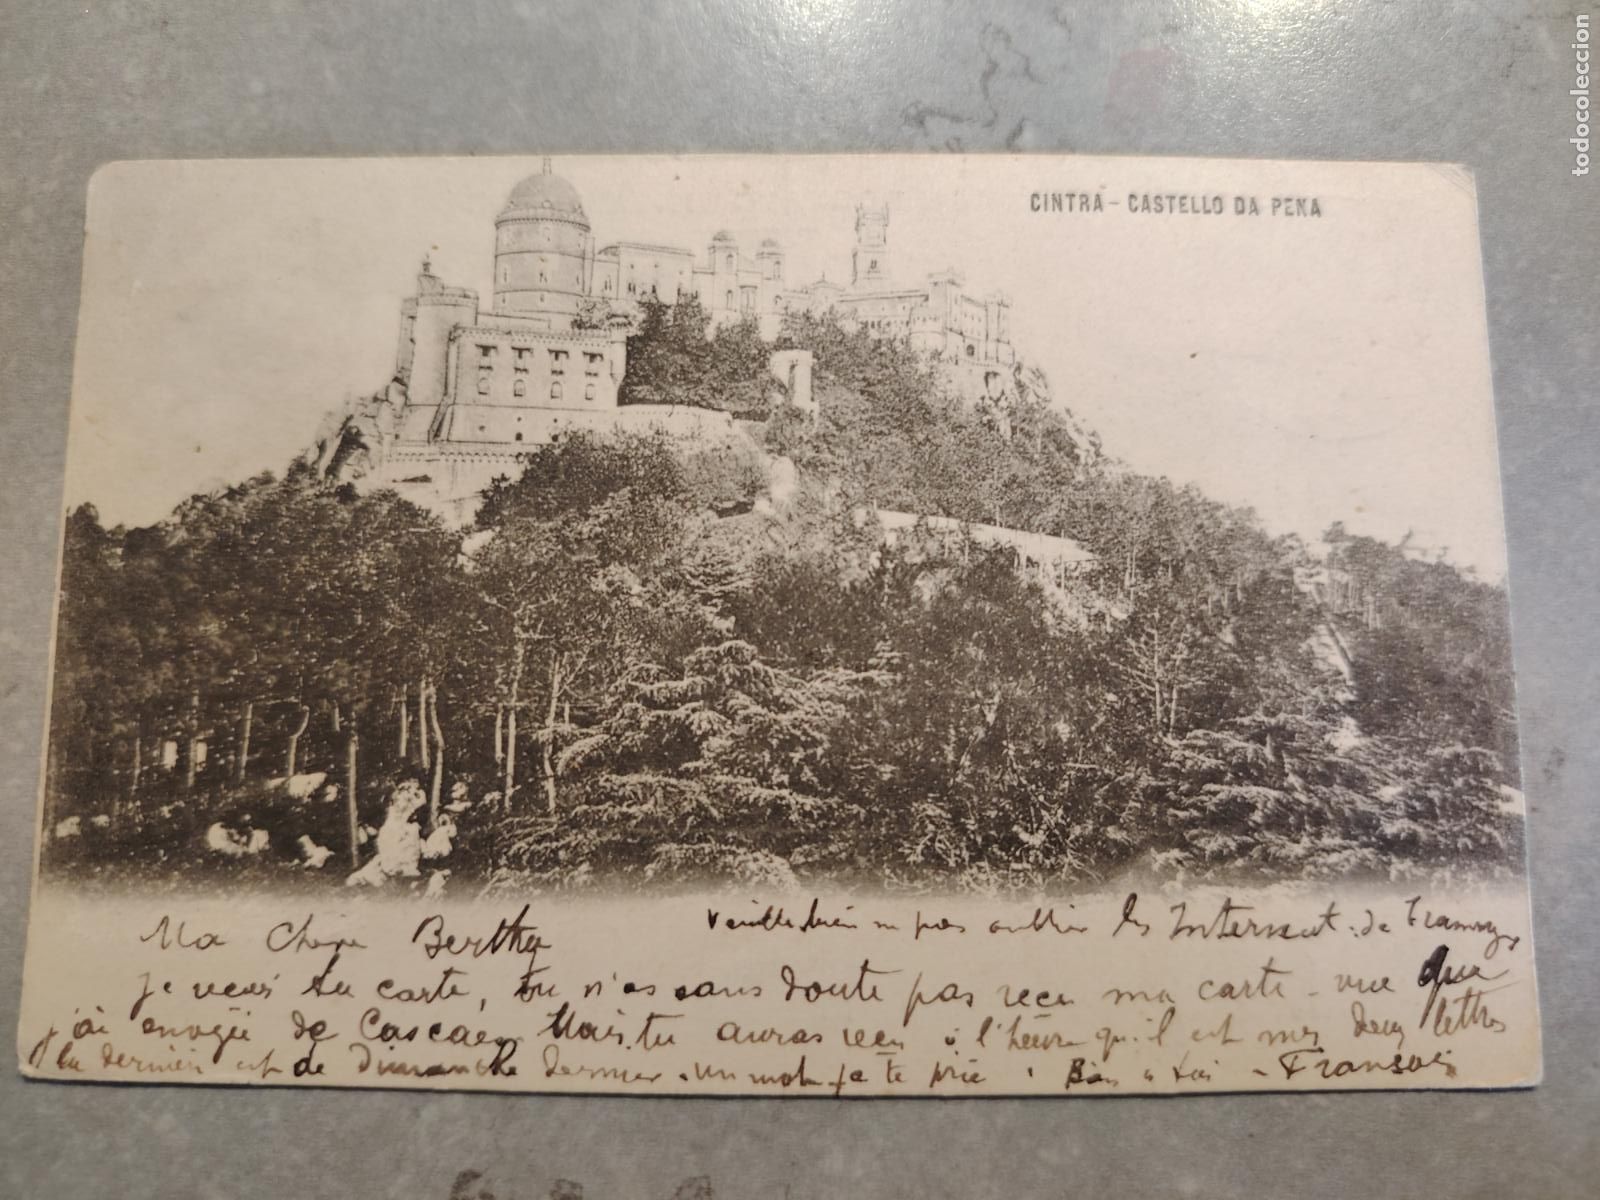 CINTRA - CASTELLO DA PENA
Ma Chère Berthe
Veuille bien ne pas oublier les de
je recois ta carte, tu n'as sans doute pas recu ma carte - vue que
j'ai envoyée de Cascaes. Mais tu auras recu à l'heure qu'il est mes deux lettres
la dernière est de Dimanche dernier. un mot je te prie. à toi - Fransois
todocoleccion